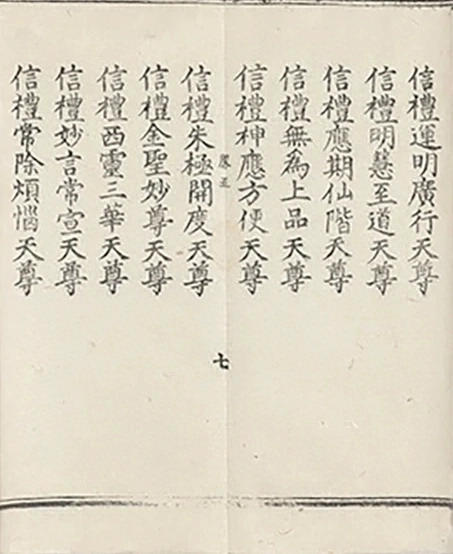 信禮運明廣行天尊
信禮明慧至道天尊
信禮應期仙階天尊
信禮無為上品天尊
信禮神應方便天尊
七
信禮朱極開度天尊
信禮金聖妙尊天尊
信禮西靈三華天尊
信禮妙言常宣天尊
信禮常除煩惱天尊